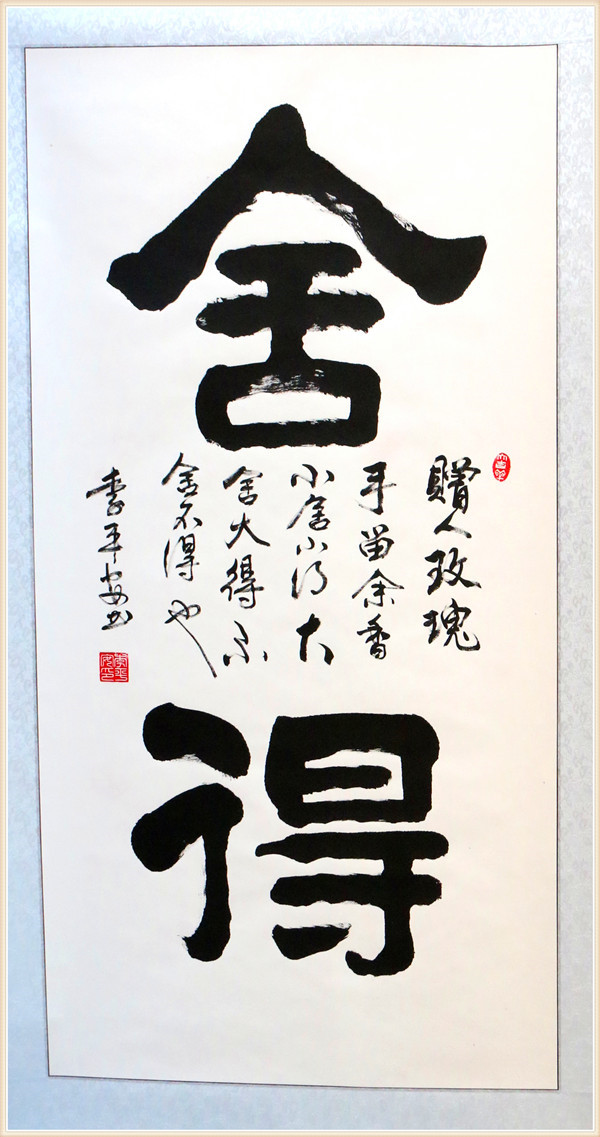 舍
贈人玫瑰
手留余香
小舍小得大
舍大得不
舍不得也
李平安书
得